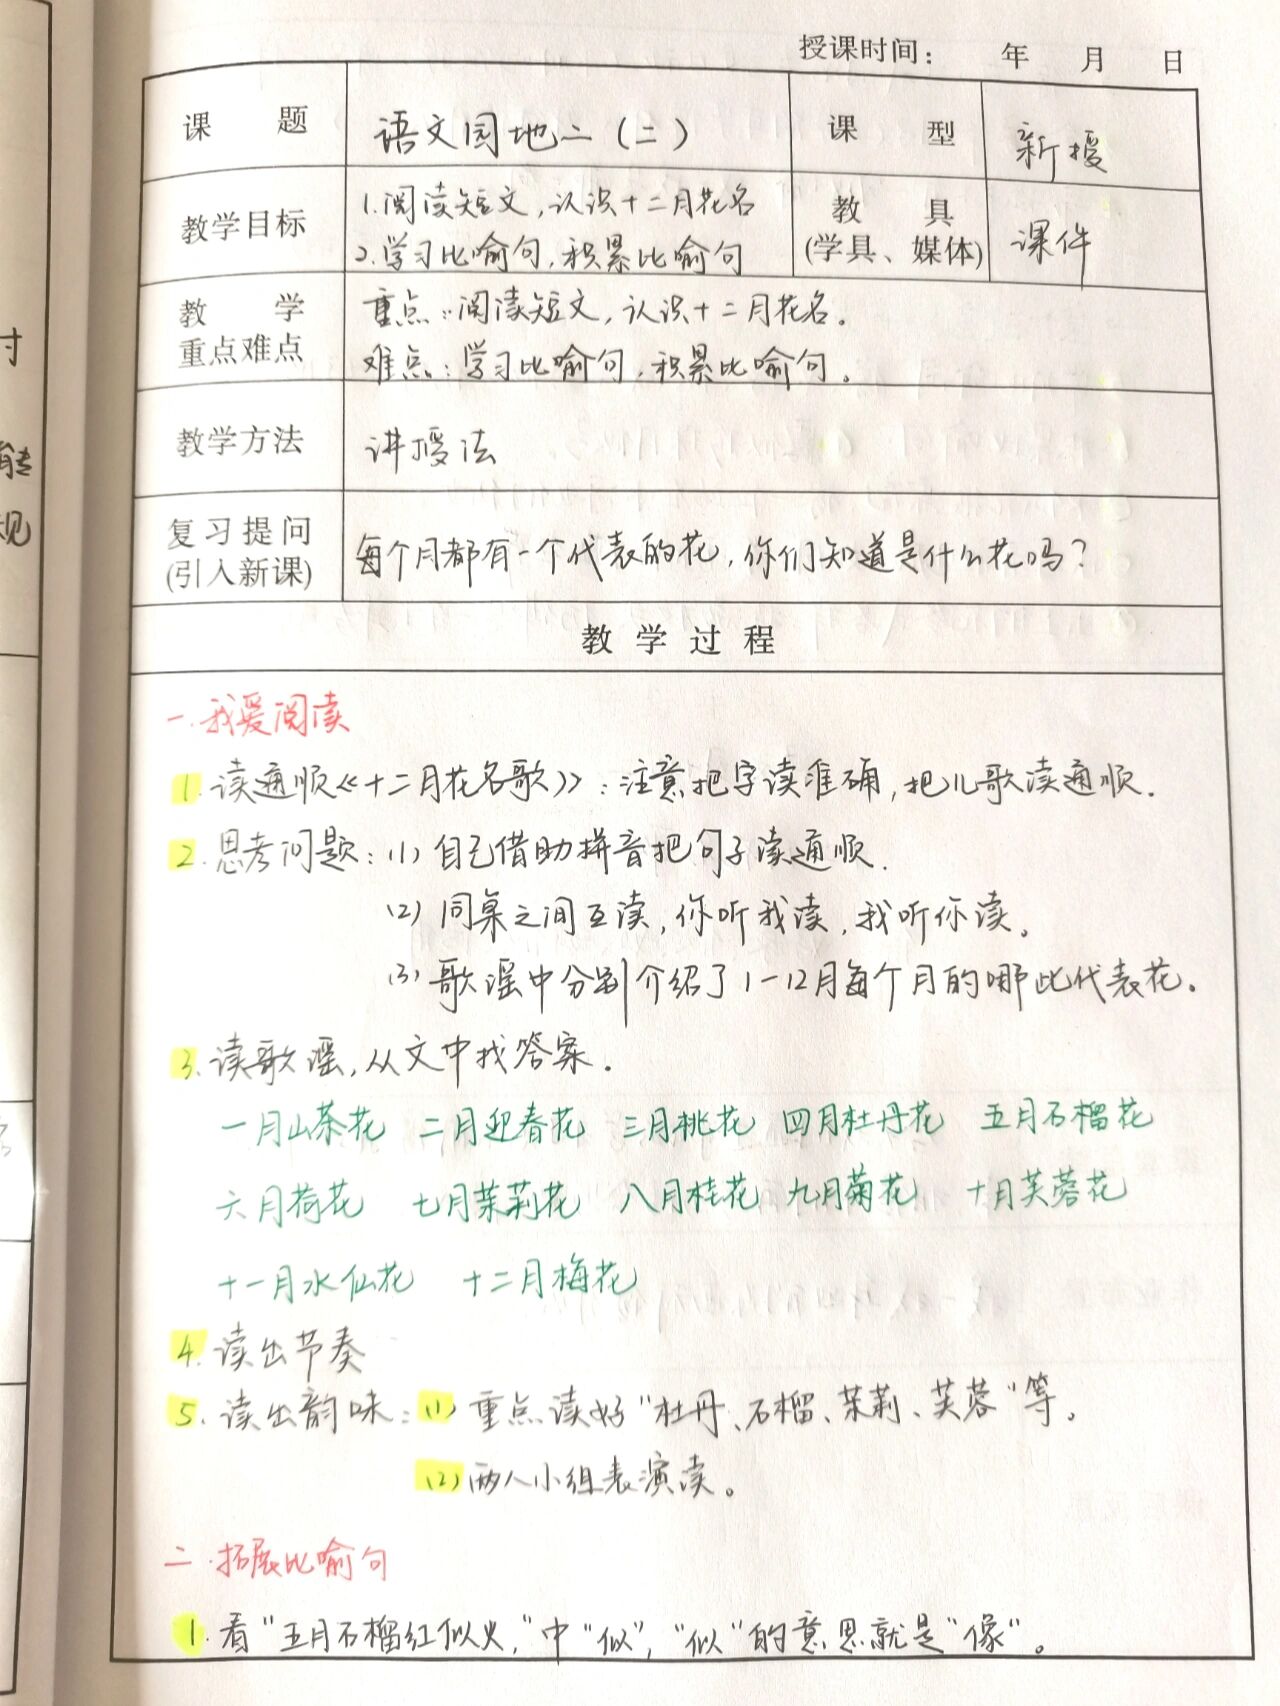 授课时间： 年 月 日
课 题 语文园地二（二） 课 型 新授
教学目标 1.阅读短文，认识十二月花名
2.学习比喻句，积累比喻句
教 具
(学具、媒体) 课件
教 学
重点难点
重点：阅读短文，认识十二月花名。
难点：学习比喻句，积累比喻句。
教学方法 讲授法
复习提问
(引入新课)
每个月都有一个代表的花，你们知道是什么花吗？
教 学 过 程
一.我爱阅读
1.读通顺《十二月花名歌》：注意把字读准确，把儿歌读通顺.
2.思考问题：(1)自己借助拼音把句子读通顺.
(2)同桌之间互读，你听我读，我听你读。
(3)歌谣中分别介绍了1-12月每个月的哪些代表花。
3.读歌谣，从文中找答案.
一月山茶花 二月迎春花 三月桃花 四月牡丹花 五月石榴花
六月荷花 七月茉莉花 八月桂花 九月菊花 十月芙蓉花
十一月水仙花 十二月梅花
4.读出节奏
5.读出韵味：(1)重点读好"牡丹、石榴、茉莉、芙蓉"等。
(2)两人小组表演读。
二.拓展比喻句
1.看"五月石榴红似火，"中"似"，"似"的意思就是"像"。
时
能
规